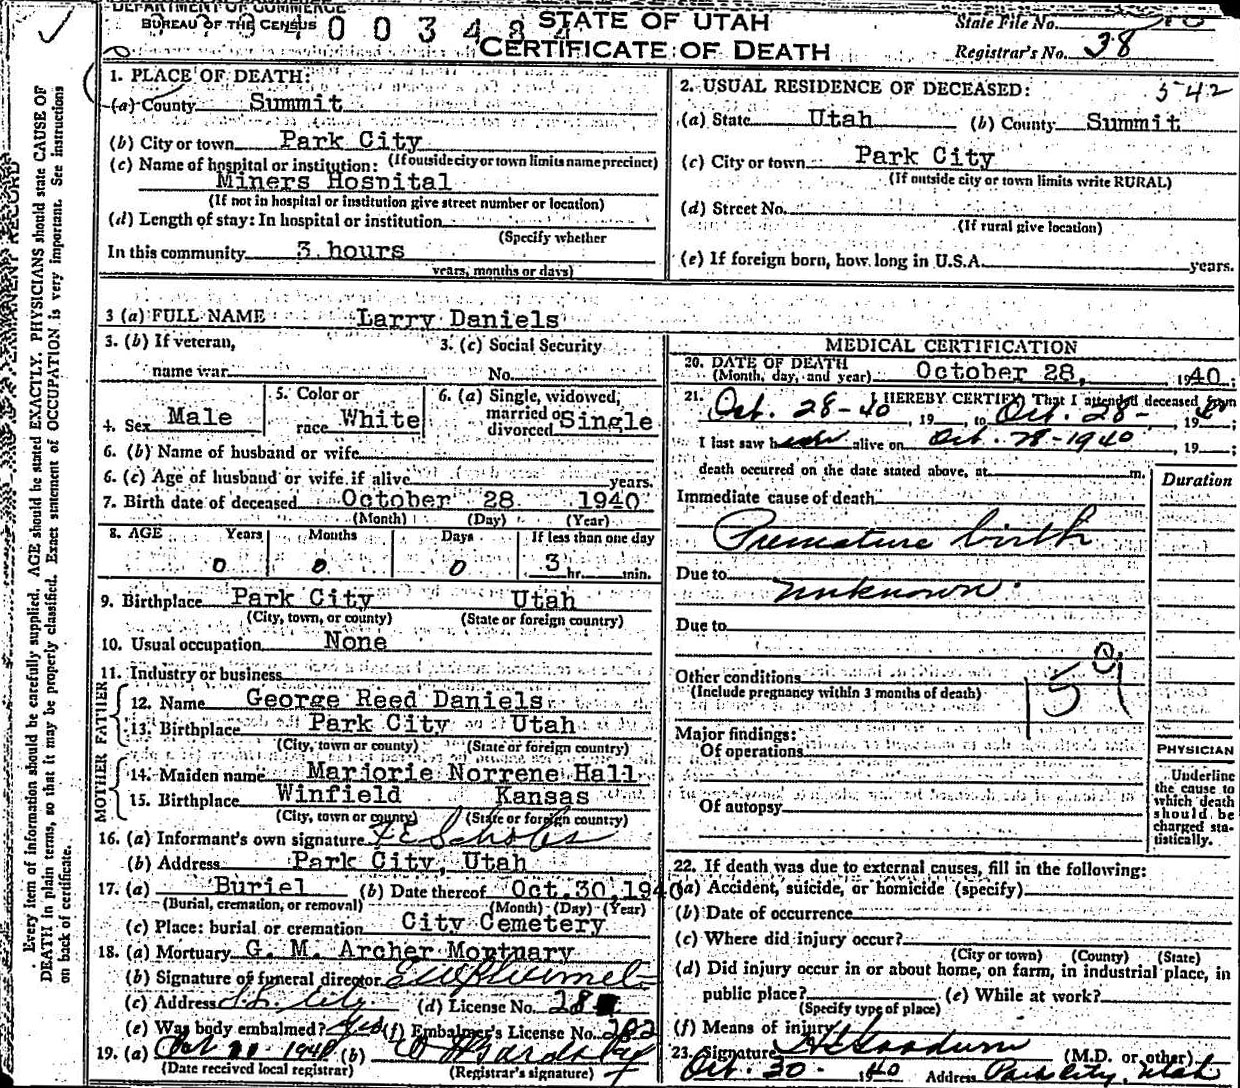 DEPARTMENT OF COMMERCE
BUREAU OF THE CENSUS
003484
STATE OF UTAH
CERTIFICATE OF DEATH
State File No.
Registrar's No. 38
Every item of information should be carefully supplied. AGE should be stated EXACTLY. PHYSICIANS should state CAUSE OF
DEATH in plain terms, so that it may be properly classified. Exact statement of OCCUPATION is very important. See instructions
on back of certificate.
1. PLACE OF DEATH:
(a) County Summit
(b) City or town Park City
(If outside city or town limits name precinct)
(c) Name of hospital or institution:
Miners Hospital
(If not in hospital or institution give street number or location)
(d) Length of stay: In hospital or institution
(Specify whether
In this community 3 hours
years, months or days)
2. USUAL RESIDENCE OF DECEASED: 542
(a) State Utah (b) County Summit
(c) City or town Park City
(If outside city or town limits write RURAL)
(d) Street No.
(If rural give location)
(e) If foreign born, how long in U.S.A. years.
3 (a) FULL NAME Larry Daniels
3. (b) If veteran, 3. (c) Social Security
name war No.
4. Sex Male 5. Color or race White 6. (a) Single, widowed, married or divorced Single
6. (b) Name of husband or wife
6. (c) Age of husband or wife if alive years.
7. Birth date of deceased October 28 1940
(Month) (Day) (Year)
8. AGE Years Months Days If less than one day
0 0 0 3 hr. min.
9. Birthplace Park City Utah
(City, town, or county) (State or foreign country)
10. Usual occupation None
11. Industry or business
FATHER
12. Name George Reed Daniels
13. Birthplace Park City Utah
(City, town or county) (State or foreign country)
MOTHER
14. Maiden name Marjorie Norrene Hall
15. Birthplace Winfield Kansas
(City, town or county) (State or foreign country)
16. (a) Informant's own signature
(b) Address Park City, Utah
17. (a) Buriel (b) Date thereof Oct. 30, 1940
(Burial, cremation, or removal) (Month) (Day) (Year)
(c) Place: burial or cremation City Cemetery
18. (a) Mortuary G. M. Archer Mortuary
(b) Signature of funeral director
(c) Address S. L. City (d) License No. 28
(e) Was body embalmed? Yes (f) Embalmer's License No. 202
19. (a) Oct 1940 (b)
(Date received local registrar) (Registrar's signature)
MEDICAL CERTIFICATION
20. DATE OF DEATH
(Month, day, and year) October 28, 1940;
21. I HEREBY CERTIFY That I attended deceased from
Oct. 28-40, 19 , to Oct. 28-, 1940;
I last saw h alive on Oct. 28-1940, 19 ;
death occurred on the date stated above, at m.
Duration
Immediate cause of death
Premature birth
Due to
unknown
Due to
Other conditions
(Include pregnancy within 3 months of death)
159
Major findings:
Of operations
Of autopsy
PHYSICIAN
Underline
the cause to
which death
should be
charged sta-
tistically.
22. If death was due to external causes, fill in the following:
(a) Accident, suicide, or homicide (specify)
(b) Date of occurrence
(c) Where did injury occur?
(City or town) (County) (State)
(d) Did injury occur in or about home, on farm, in industrial place, in
public place? (e) While at work?
(Specify type of place)
(f) Means of injury
23. Signature (M.D. or other)
Oct. 30- 1940 Address Park City, Utah